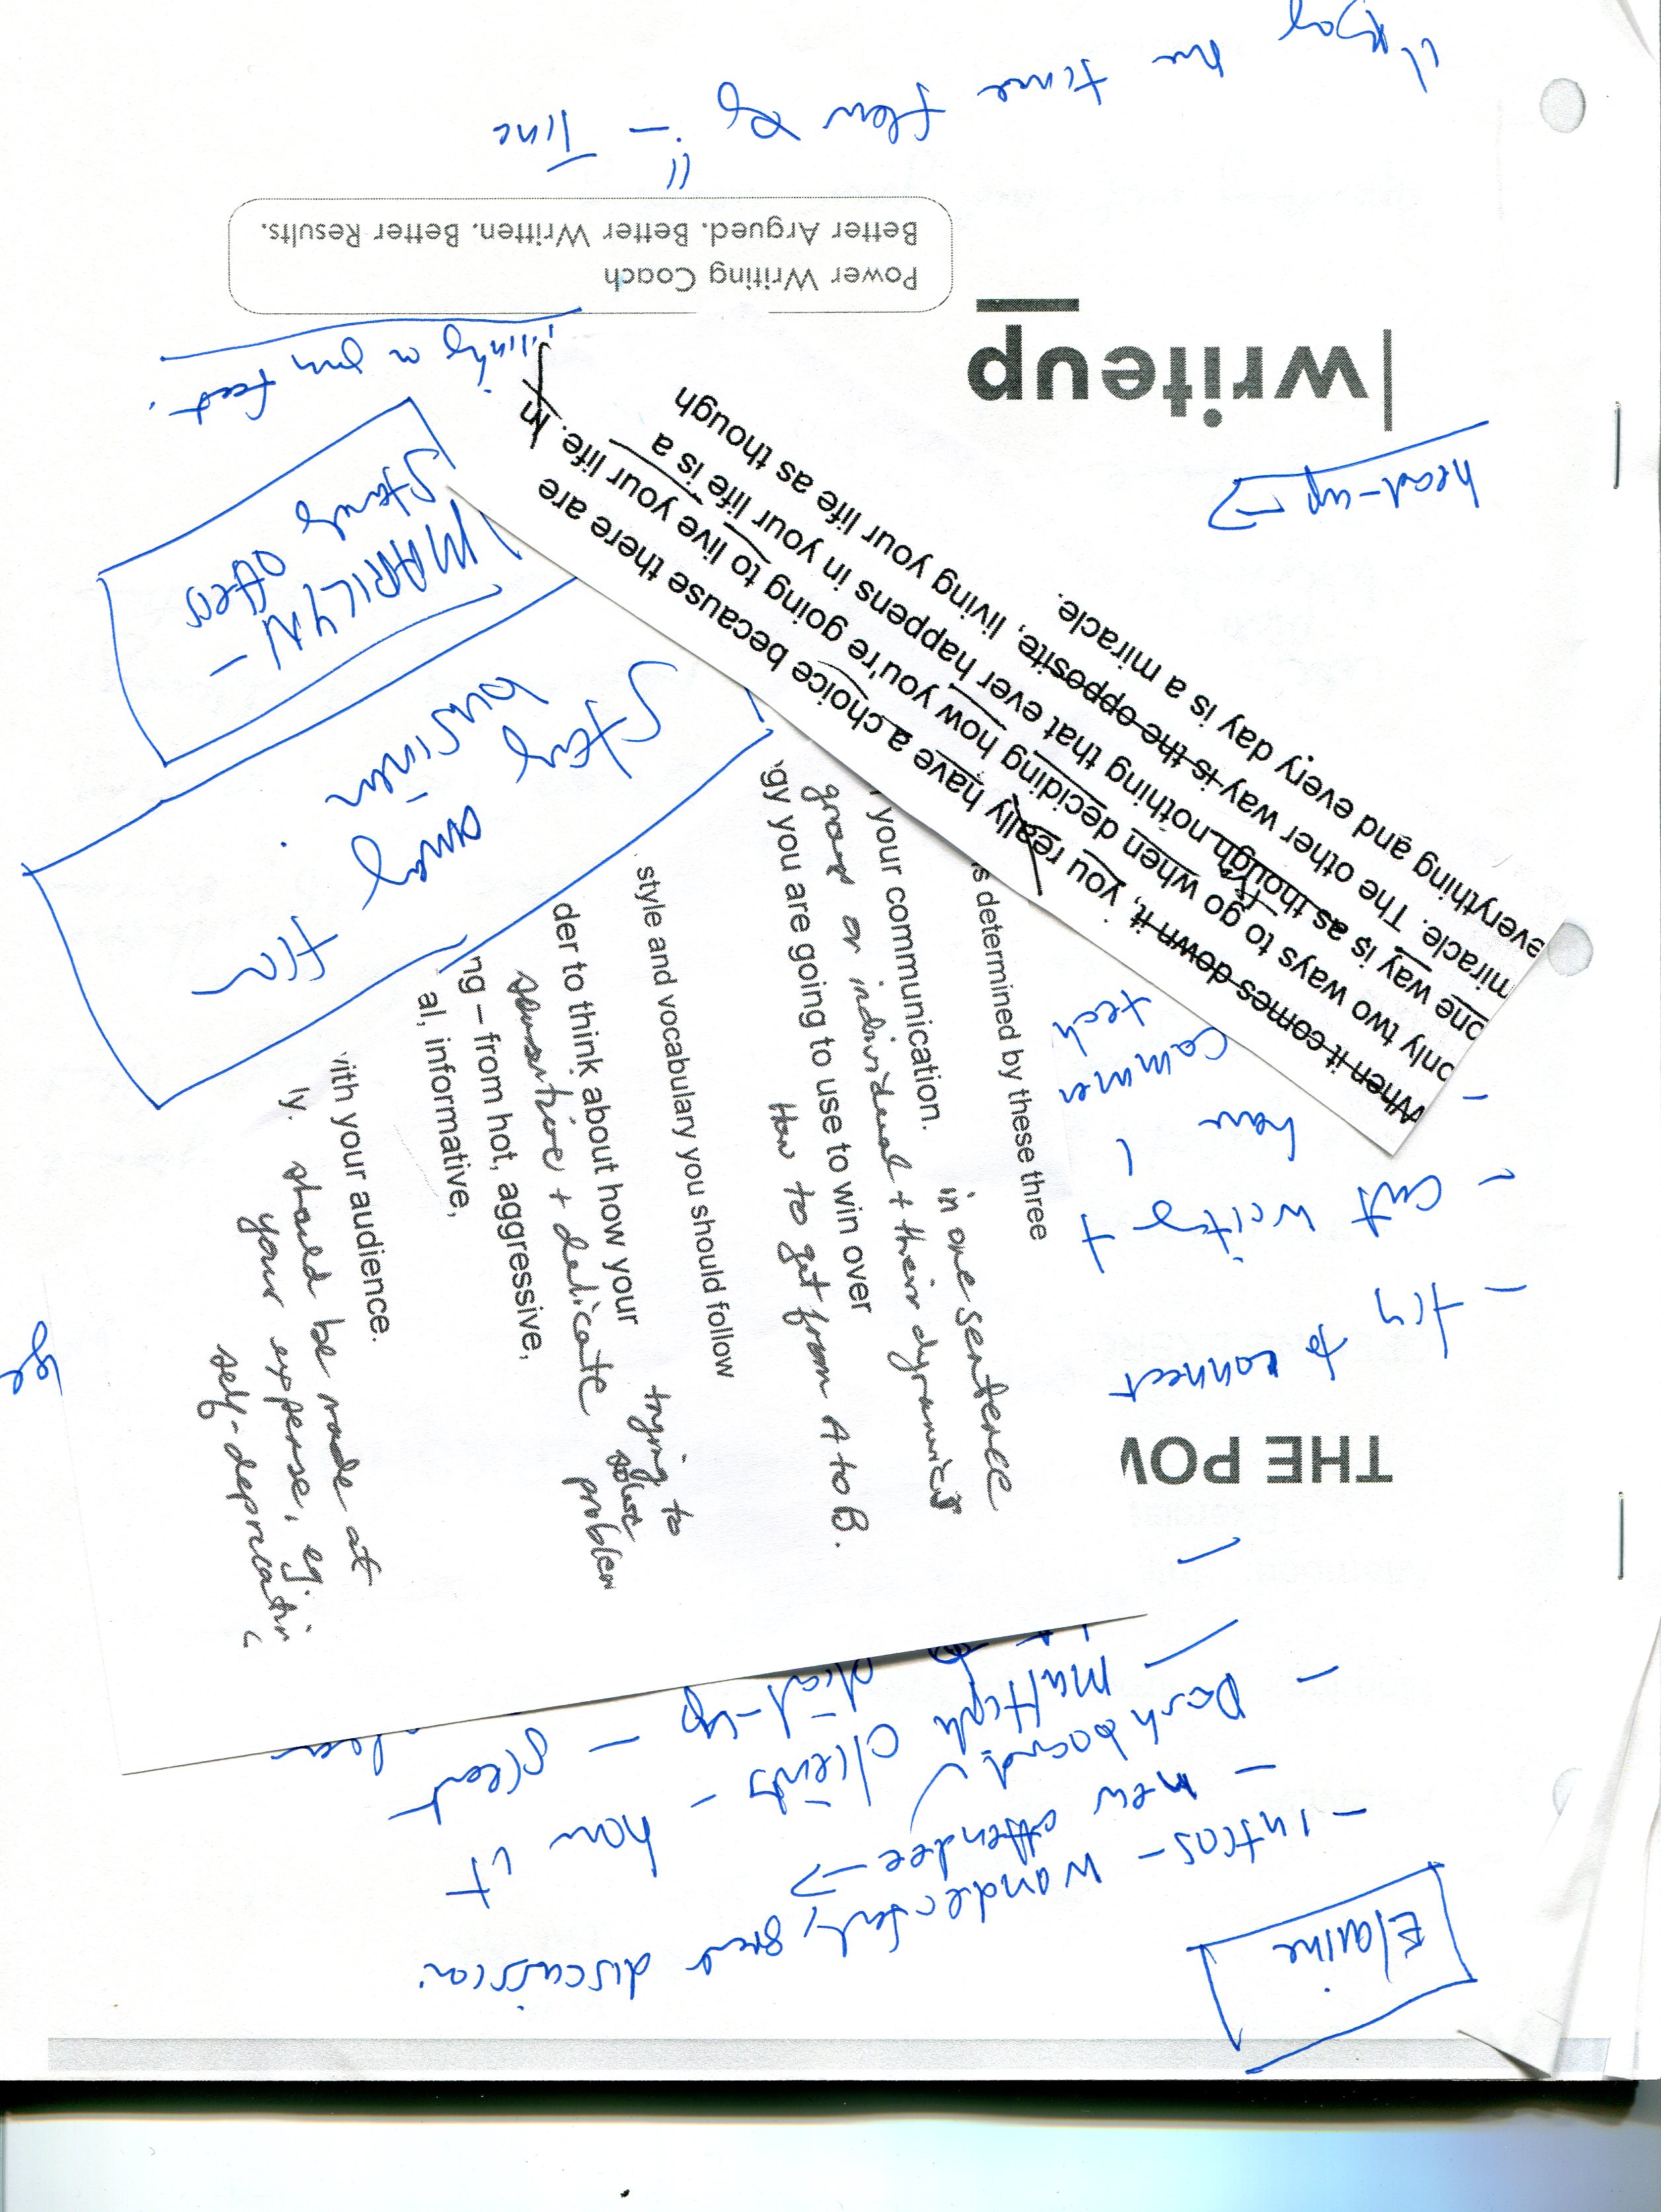 Elaine
- Intros - wonderful, great discussion.
- new attendee →
- Dashboard ✓
multiple clients - how it
dial-up - great
THE POW
- try to connect
- cut writing +
how I
commer
tech
head-up →
|writeup
Power Writing Coach
Better Argued. Better Written. Better Results.
the time flew by" - Time
When it comes down it, you really have a choice because there are
only two ways to go when deciding how you're going to live your life. In
one way is as though nothing that ever happens in your life is a
miracle. The other way is the opposite, living your life as though
everything and every day is a miracle.
MARILYN -
Stands
Stay away
business
s determined by these three
in one sentence
your communication.
group or individual + their dynamics
gy you are going to use to win over
How to get from A to B.
style and vocabulary you should follow
trying to
solve
problem
der to think about how your
sensitive + delicate
ng – from hot, aggressive,
al, informative,
with your audience.
ly. should be made at
your expense, eg.
self-deprecatin